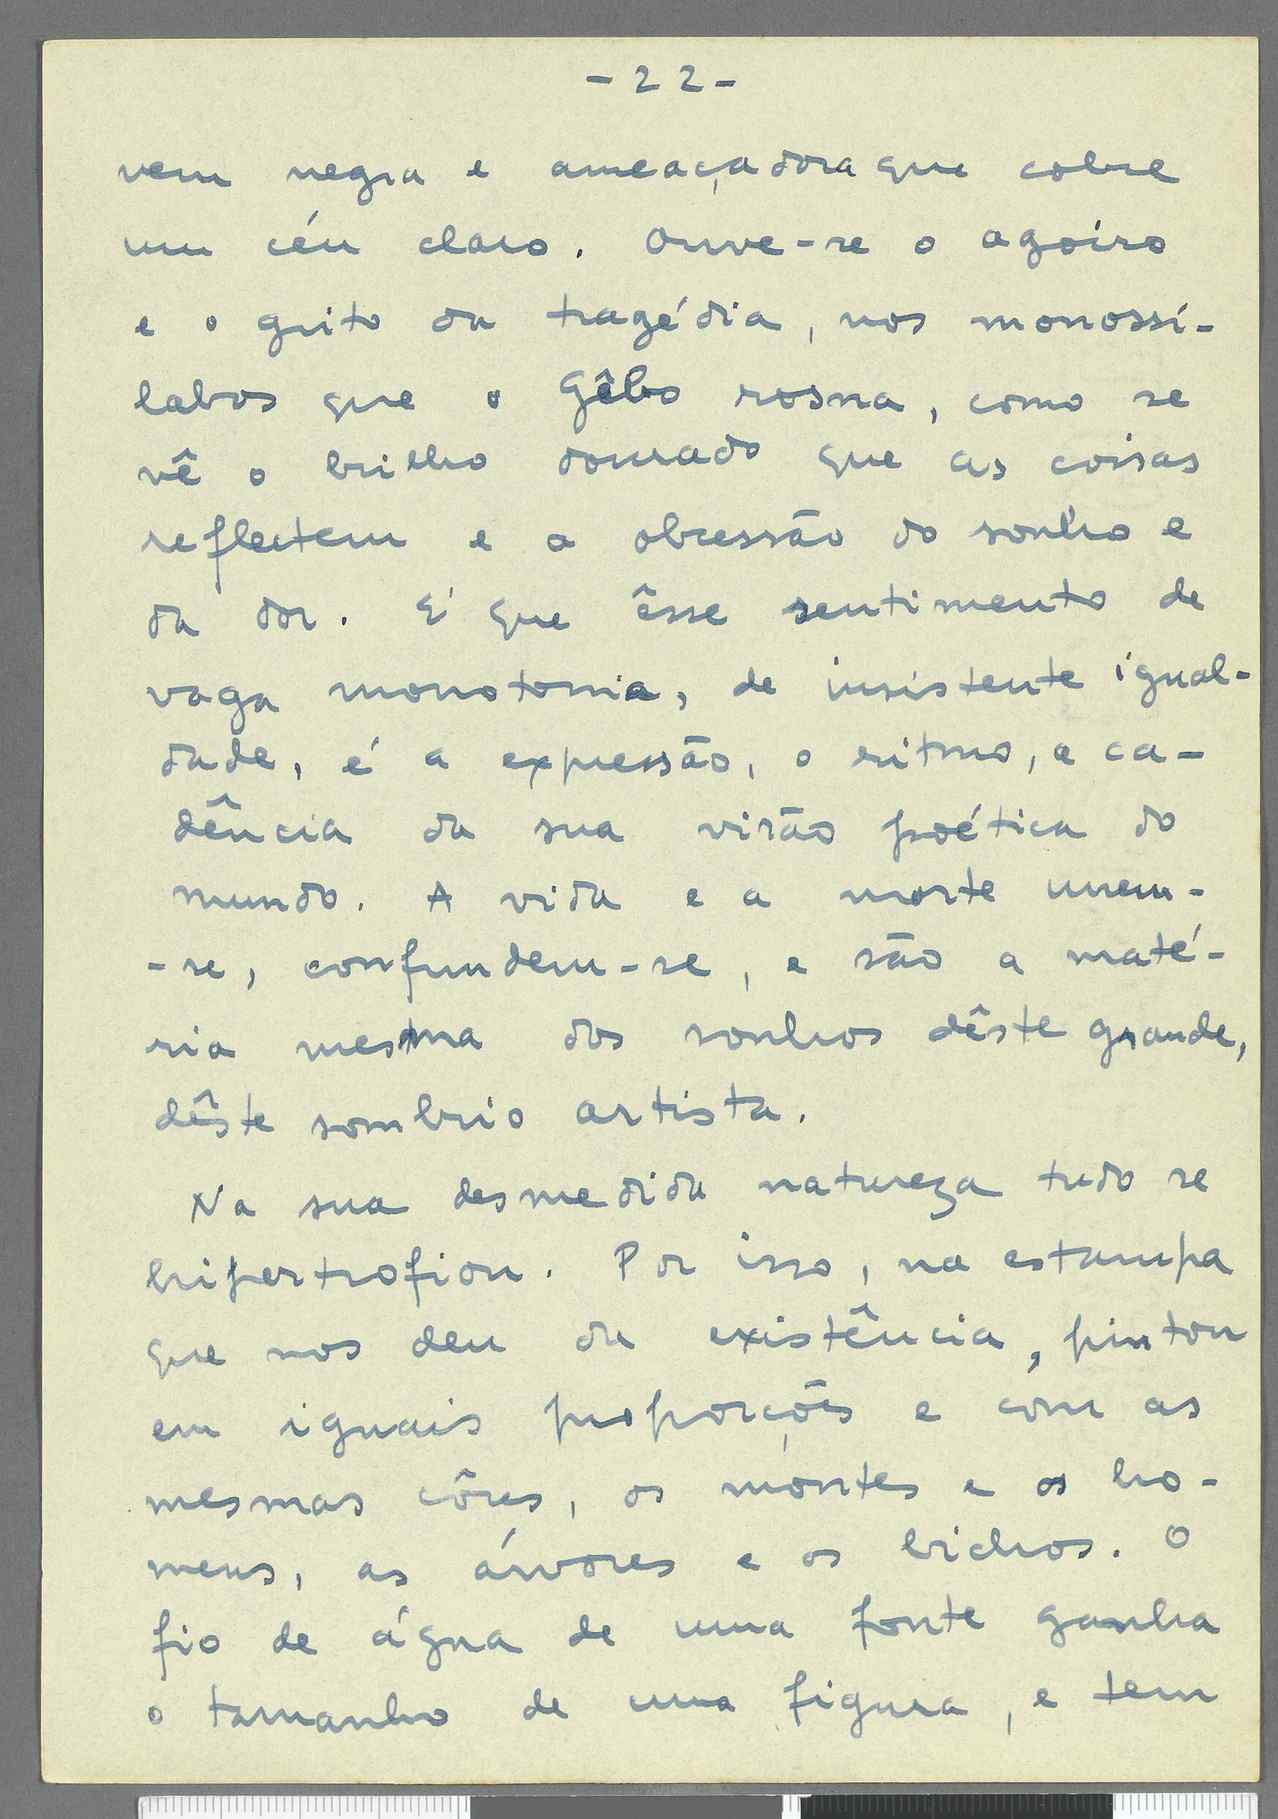 - 22 -
vem negra e ameaçadora que cobre
um céu claro. Ouve-se o agoiro
e o grito da tragédia, nos monossí-
labos que o Gêbo rosna, como se
vê o brilho doirado que as coisas
reflectem e a obsessão do sonho e
da dor. E' que êsse sentimento de
vaga monotonia, de insistente igual-
dade, é a expressão, o ritmo, a ca-
dência da sua visão poética do
mundo. A vida e a morte unem-
-se, confundem-se, e são a maté-
ria mesma dos sonhos dêste grande,
dêste sombrio artista.
Na sua desmedida natureza tudo se
hipertrofiou. Por isso, na estampa
que nos deu da existência, pintou
em iguais proporções e com as
mesmas côres, os montes e os ho-
mens, as árvores e os bichos. O
fio de água de uma fonte ganha
o tamanho de uma figura, e tem